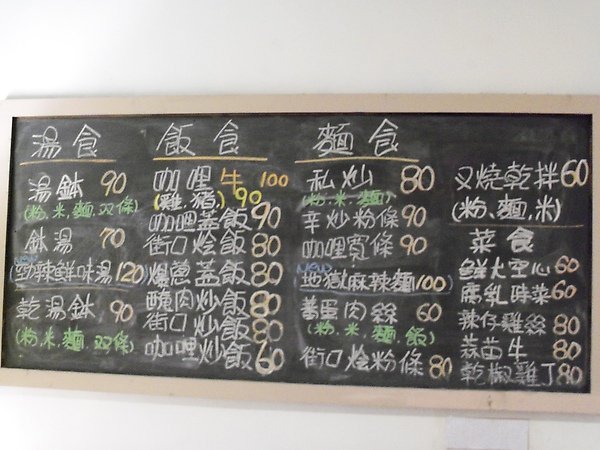 湯食
湯鉢 90
(粉、米、麵、双條)
鉢湯 70
NEW
(勁辣鮮味湯120)
乾湯鉢 90
(粉、米、麵、双條)
飯食
咖哩牛 100
(雞、豬) 90
咖哩蓋飯 90
街口燴飯 80
爆蔥蓋飯 80
醃肉炒飯 80
街口炒飯 80
咖哩炒飯 60
麵食
私炒 80
(粉、米、麵)
辛炒粉條 90
咖哩寬條 90
NEW
地獄麻辣麵100)
蕃蛋肉絲 60
(粉、米、麵、飯)
街口燴粉條 80
叉燒乾拌60
(粉、麵、米)
菜食
鮮大空心60
腐乳時菜60
辣仔雞絲80
蒜苗牛 80
乾椒雞丁80